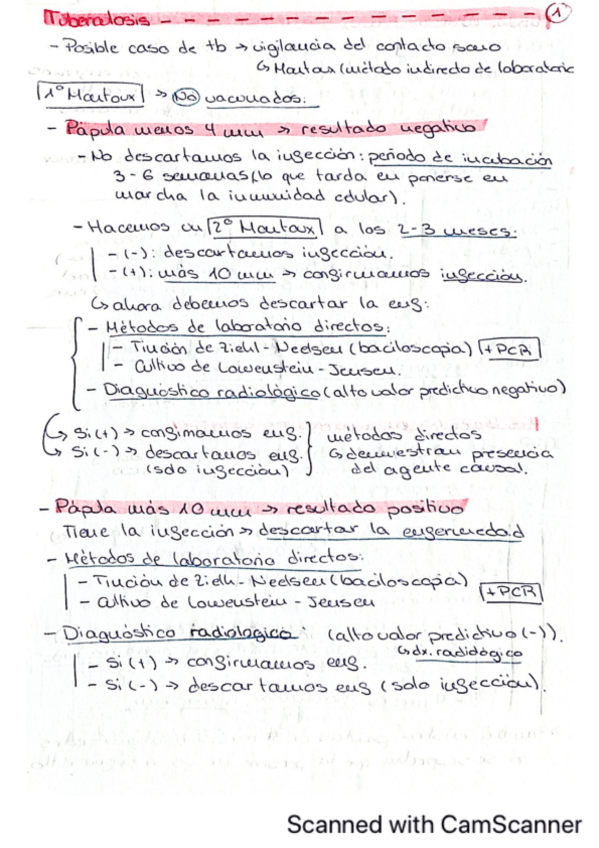 Tuberculosis - - - - - - - - - - - - - - - 1
- Posible caso de tb → vigilancia del contacto sano
↳ Mantoux (método indirecto de laboratorio
1º Mantoux → No vacunados.
- Pápula menos 4 mm → resultado negativo
- No descartamos la infección: período de incubación
3-6 semanas (lo que tarda en ponerse en
marcha la inmunidad celular).
- Hacemos un 2º Mantoux a los 2-3 meses:
- (-): descartamos infección.
- (+): más 10 mm → confirmamos infección.
↳ ahora debemos descartar la enf:
- Métodos de laboratorio directos:
- Tinción de Ziehl-Neelsen (baciloscopia) + PCR
- Cultivo de Lowenstein-Jensen.
- Diagnóstico radiológico (alto valor predictivo negativo)
↳ Si (+) → confimamos enf. métodos directos
↳ Si (-) → descartamos enf. ↳ demuestran presencia
(solo infección) del agente causal.
- Pápula más 10 mm → resultado positivo
Tiene la infección → descartar la enfermedad
- Métodos de laboratorio directos:
- Tinción de Ziehl-Neelsen (baciloscopia) + PCR
- Cultivo de Lowenstein-Jensen
- Diagnóstico radiológico (alto valor predictivo (-)).
↳ dx. radiológico
- Si (+) → confirmamos enf.
- Si (-) → descartamos enf (solo infección).
Scanned with CamScanner